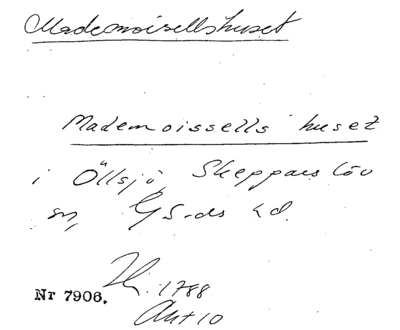 Mademoisellshuset
Mademoissells huset
i Öllsjö, Skepparslöv
sn, Gs-ds hd.
1788
Nr 7906.
Akt 10